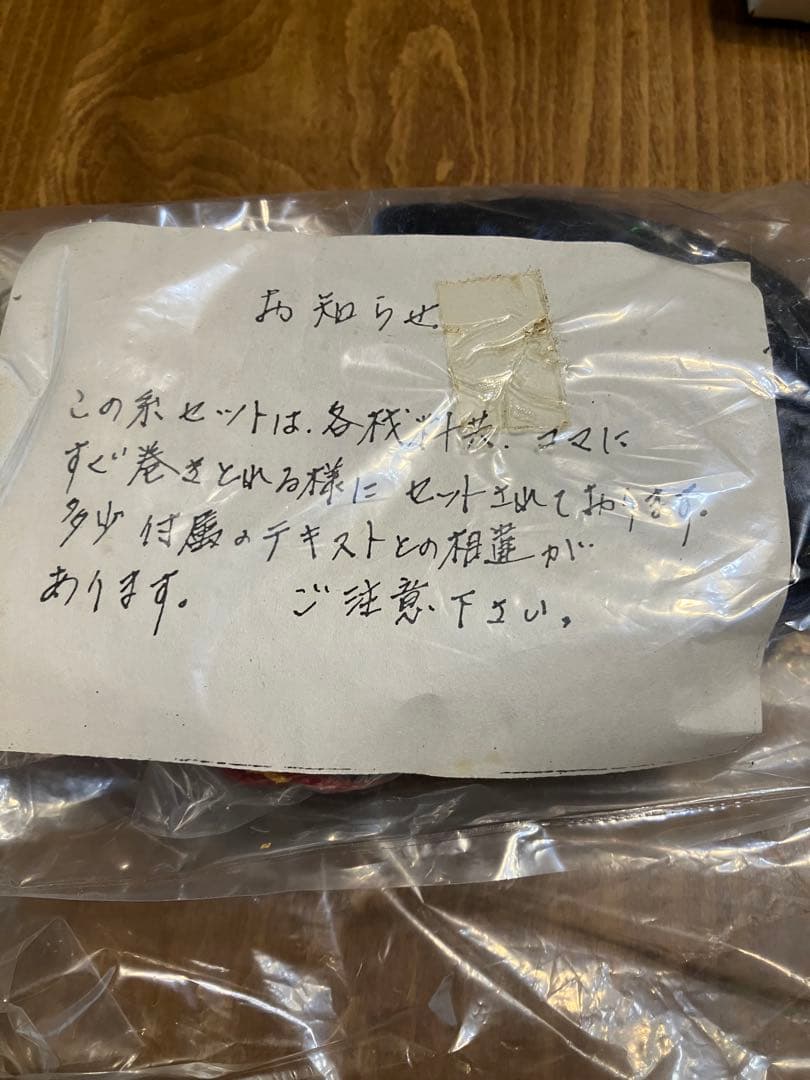 お知らせ
この糸セットは、各材料共、コマに
すぐ巻きとれる様に セットされております。
多少 付属のテキストとの相違が
あります。 ご注意下さい。